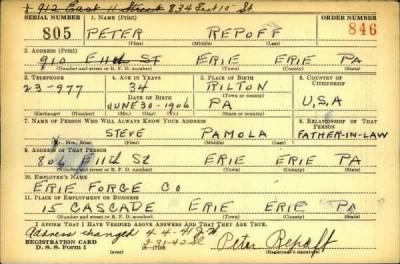 912 East 11 Street 834 East 10 St
SERIAL NUMBER 1. Name (Print) ORDER NUMBER
805 PETER REPOFF 846
(First) (Middle) (Last)
2. Address (Print)
910 E 11th ST ERIE ERIE PA
(Number and street or R. F. D. number) (Town) (County) (State)
3. Telephone 4. Age in Years 5. Place of Birth 6. Country of Citizenship
23-977 34 RILTON
Date of Birth (Town or county)
JUNE 30-1906 PA U,S,A
(Exchange) (Number) (Mo.) (Day) (Yr.) (State or country)
7. Name of Person Who Will Always Know Your Address 8. Relationship of That Person
STEVE PAMOLA FATHER-IN-LAW
(Mr., Mrs., Miss) (First) (Middle) (Last)
9. Address of That Person
806 E 11th St ERIE ERIE PA
(Number and street or R. F. D. number) (Town) (County) (State)
10. Employer's Name
ERIE FORGE CO
11. Place of Employment or Business
15 CASCADE ERIE ERIE PA
(Number and street or R. F. D. number) (Town) (County) (State)
I Affirm That I Have Verified Above Answers and That They Are True.
Address changed 4-4-41
REGISTRATION CARD
D. S. S. Form 1 (over) Peter Repoff
(Registrant's signature)